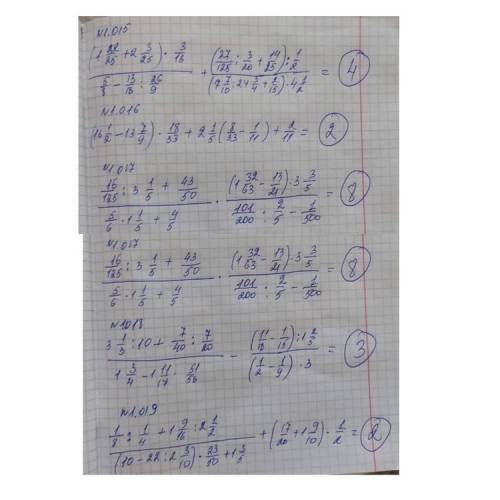 №1.015
(1 22/25 + 2 3/25) · 3/16 / 5/8 − 13/18 : 26/9 + (27/125 : 3/20 + 14/25) : 1/2 / · 4 1/2 = 4
№1.016
(16 1/2 − 13 7/9) · 18/33 + 2 1/5 (8/33 − 1/11) + 2/11 = 2
№1.017
16/125 : 3 1/5 + 43/50 / 5/6 · 1 1/5 + 4/5 · (1 32/63 − 13/21) · 3 3/5 / 101/200 : 2/5 − 1/500 = 8
№1.017
16/125 : 3 1/5 + 43/50 / 5/6 · 1 1/5 + 4/5 · (1 32/63 − 13/21) · 3 3/5 / 101/200 : 2/5 − 1/500 = 8
№1018
3 1/3 : 10 + 7/40 : 7/20 / 1 3/4 − 1 11/17 · 51/56 − (11/18 − 1/15) : 1 2/3 / (1/2 − 1/9) · 3 = 3
№1.019
1/8 : 1/4 + 1 9/16 : 2 1/2 / (10 − 22 : 2 3/10) · 23/50 + 1 3/5 + (17/20 + 1 9/10) · 1/2 = 2